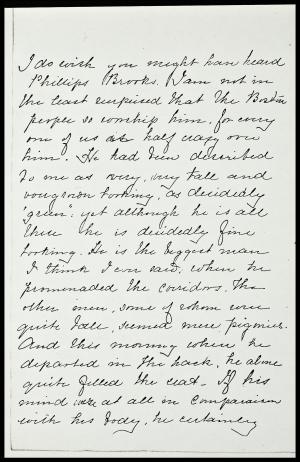 I do wish you might have heard
Phillips Brooks. I am not in
the least surprised that the Boston
people so worship him, for every
one of us is half crazy over
him. He had been described
to me as very, very tall and
young looking, as decidedly
"green": yet although he is all
this he is decidedly fine
looking. He is the biggest man
I think I ever saw, when he
promenaded the corridors. The
other men, some of whom were
quite tall, seemed mere pigmies.
And this morning when he
departed in the hack, he alone
quite filled the seat. If his
mind were at all in comparison
with his body, he certainly